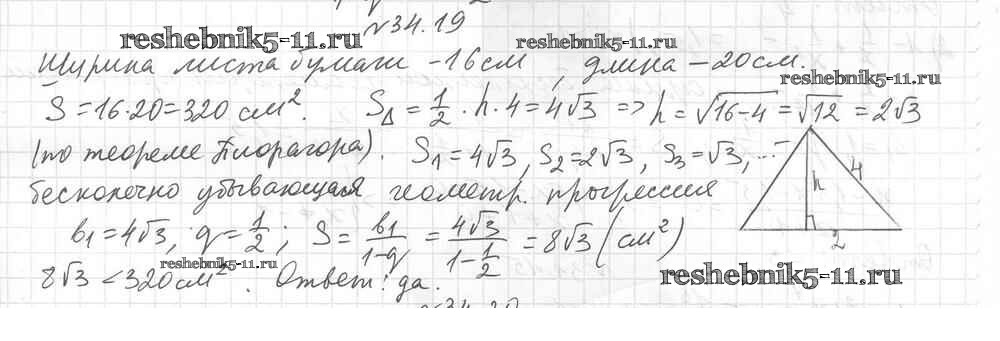 №34.19
reshebnik5-11.ru
reshebnik5-11.ru
Ширина листа бумаги -16см, длина -20см.
reshebnik5-11.ru
S=16·20=320 см². S△=1/2·h·4=4√3 => h=√16-4=√12=2√3
(по теореме Пифагора). S₁=4√3, S₂=2√3, S₃=√3, ...-
бесконечно убывающая геометр. прогрессия
h
4
2
b₁=4√3, q=1/2; S=b₁/1-q=4√3/1-1/2=8√3(см²)
reshebnik5-11.ru
8√3<320см². Ответ: да.
reshebnik5-11.ru
№34.20